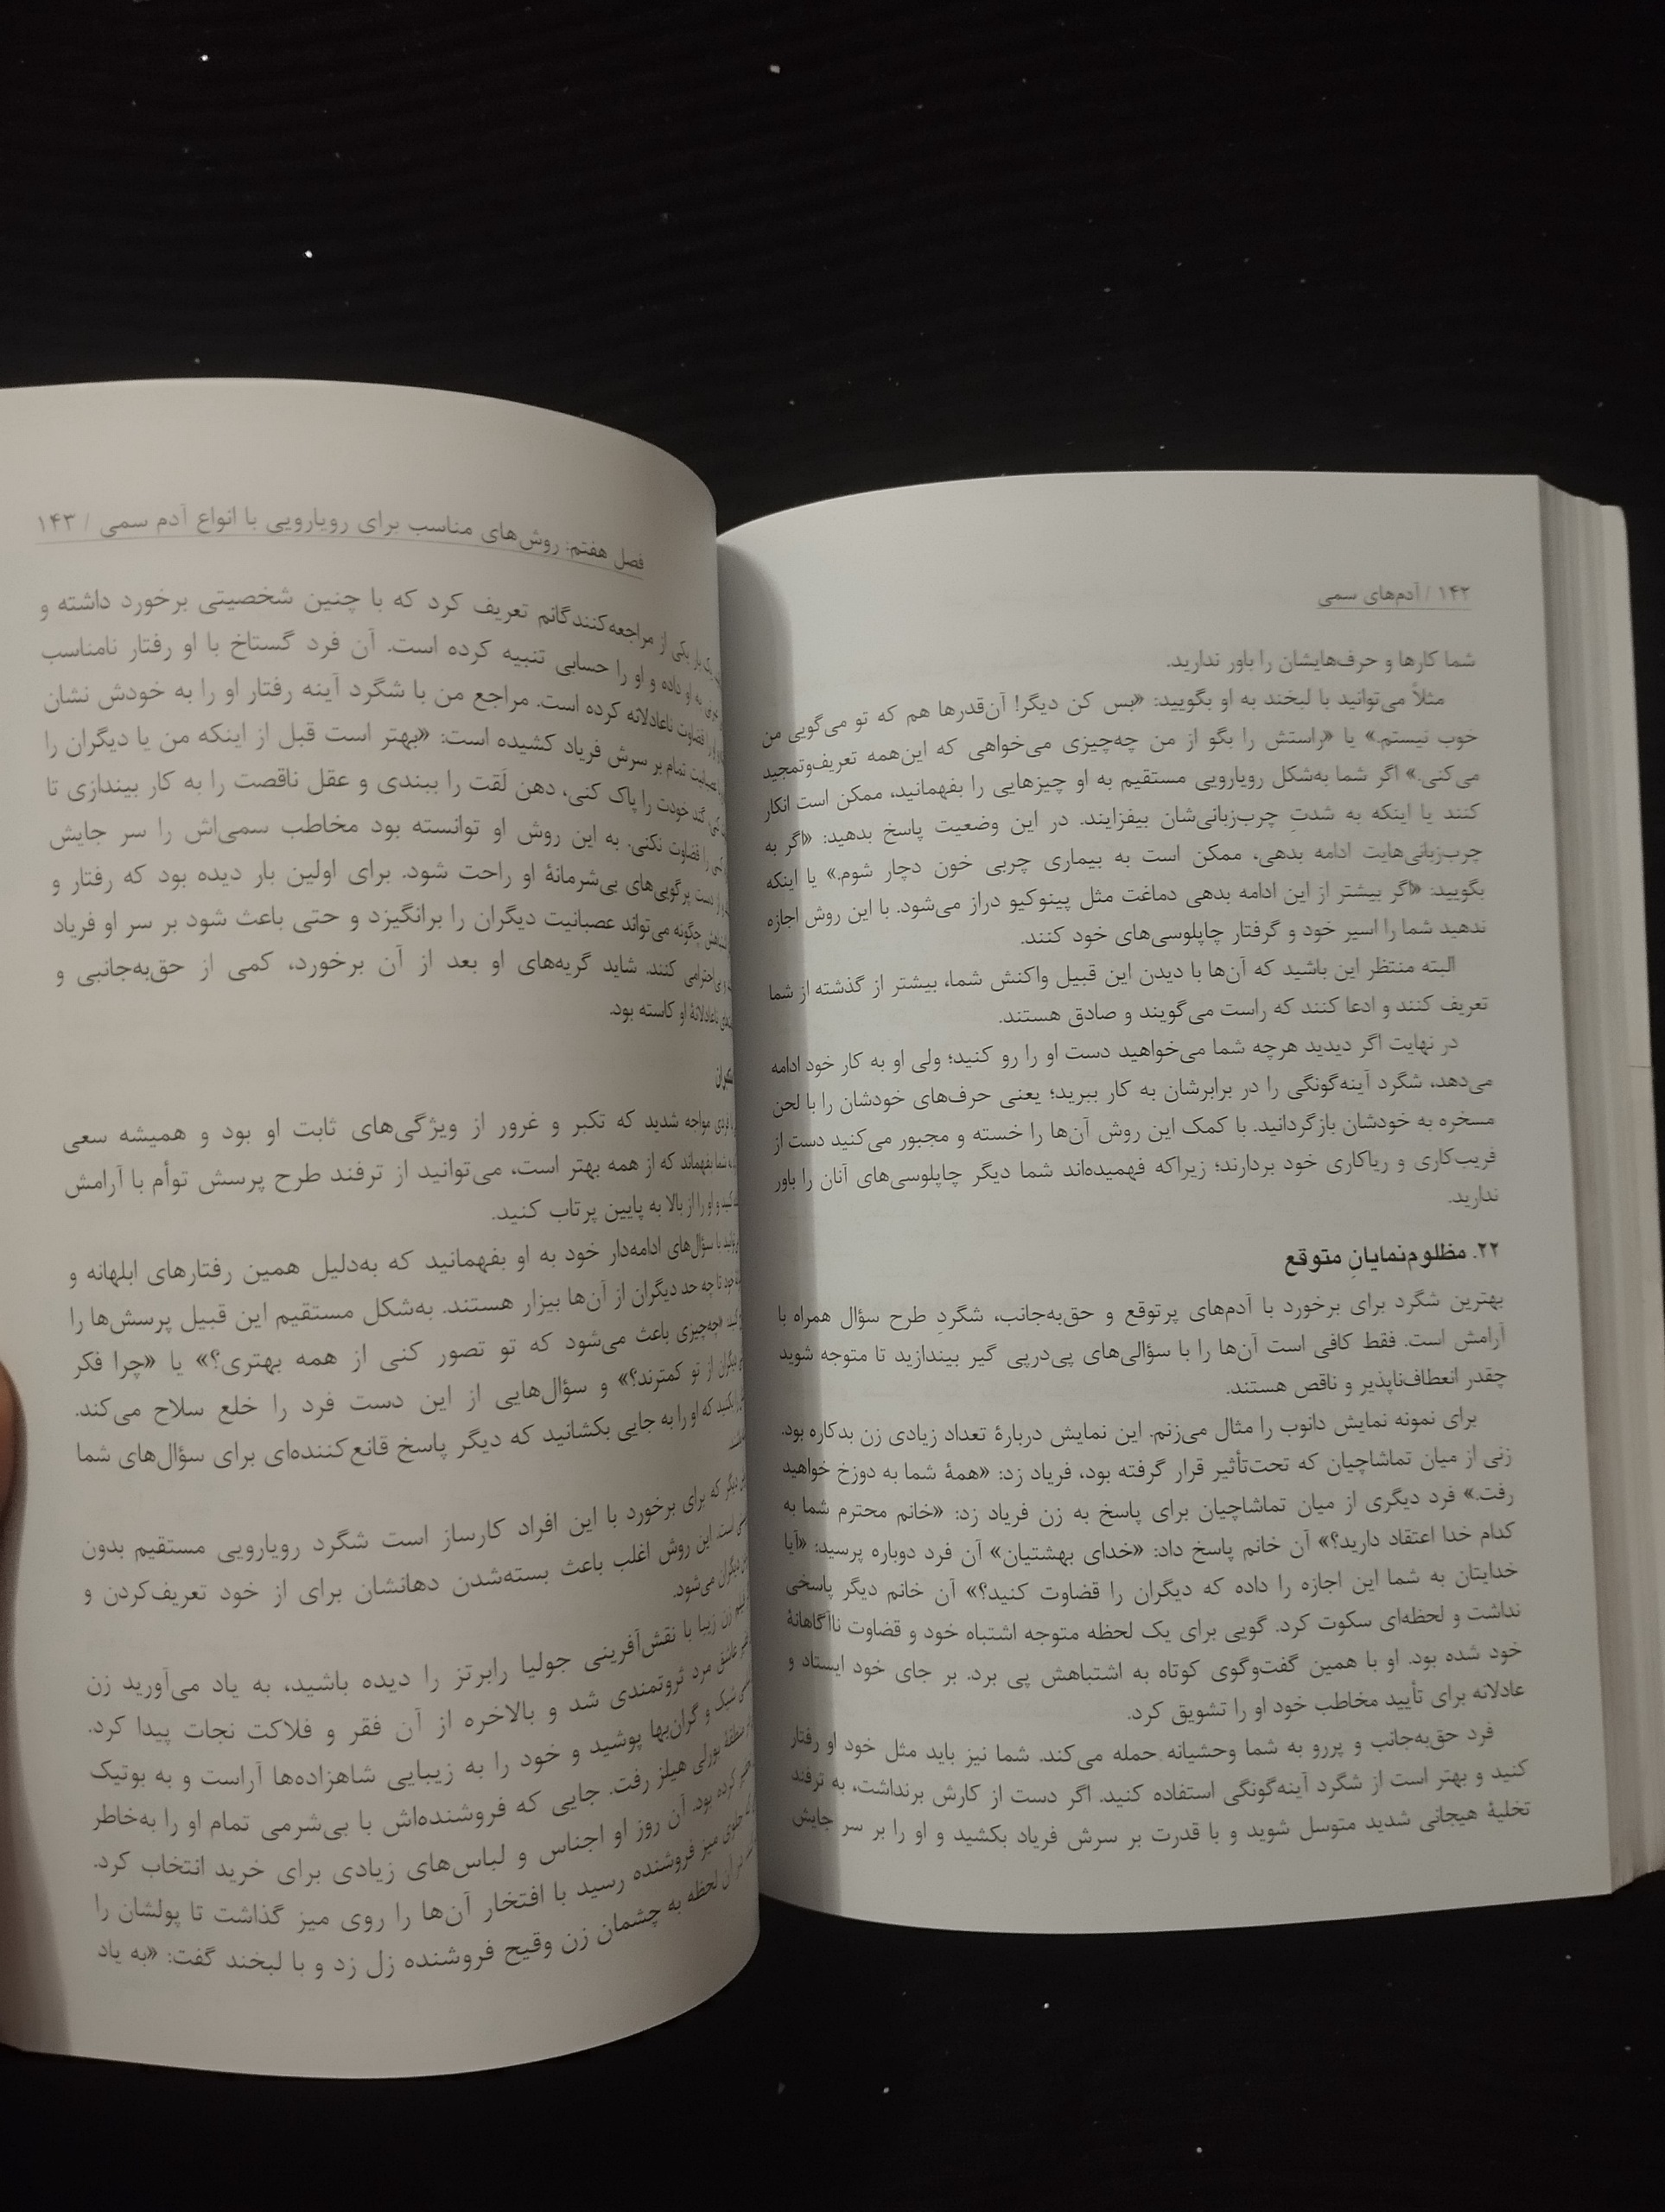 ۱۴۲ / آدم‌های سمی
شما کارها و حرف‌هایشان را باور ندارید.
مثلاً می‌توانید با لبخند به او بگویید: «بس کن دیگر! آن‌قدرها هم که تو می‌گویی من
خوب نیستم.» یا «راستش را بگو از من چه‌چیزی می‌خواهی که این‌همه تعریف‌وتمجید
می‌کنی.» اگر شما به‌شکل رویارویی مستقیم به او چیزهایی را بفهمانید، ممکن است انکار
کنند یا اینکه به شدتِ چرب‌زبانی‌شان بیفزایند. در این وضعیت پاسخ بدهید: «اگر به
چرب‌زبانی‌هایت ادامه بدهی، ممکن است به بیماری چربی خون دچار شوم.» یا اینکه
بگویید: «اگر بیشتر از این ادامه بدهی دماغت مثل پینوکیو دراز می‌شود. با این روش اجازه
ندهید شما را اسیر خود و گرفتار چاپلوسی‌های خود کنند.
البته منتظر این باشید که آن‌ها با دیدن این قبیل واکنش شما، بیشتر از گذشته از شما
تعریف کنند و ادعا کنند که راست می‌گویند و صادق هستند.
در نهایت اگر دیدید هرچه شما می‌خواهید دست او را رو کنید؛ ولی او به کار خود ادامه
می‌دهد، شگرد آینه‌گونگی را در برابرشان به کار ببرید؛ یعنی حرف‌های خودشان را با لحن
مسخره به خودشان بازگردانید. با کمک این روش آن‌ها را خسته و مجبور می‌کنید دست از
فریب‌کاری و ریاکاری خود بردارند؛ زیراکه فهمیده‌اند شما دیگر چاپلوسی‌های آنان را باور
ندارید.
۲۲. مظلوم‌نمایانِ متوقع
بهترین شگرد برای برخورد با آدم‌های پرتوقع و حق‌به‌جانب، شگردِ طرح سؤال همراه با
آرامش است. فقط کافی است آن‌ها را با سؤالی‌های پی‌درپی گیر بیندازید تا متوجه شوید
چقدر انعطاف‌ناپذیر و ناقص هستند.
برای نمونه نمایش دانوب را مثال می‌زنم. این نمایش دربارهٔ تعداد زیادی زن بدکاره بود.
زنی از میان تماشاچیان که تحت‌تأثیر قرار گرفته بود، فریاد زد: «همهٔ شما به دوزخ خواهید
رفت.» فرد دیگری از میان تماشاچیان برای پاسخ به زن فریاد زد: «خانم محترم شما به
کدام خدا اعتقاد دارید؟» آن خانم پاسخ داد: «خدای بهشتیان» آن فرد دوباره پرسید: «آیا
خدایتان به شما این اجازه را داده که دیگران را قضاوت کنید؟» آن خانم دیگر پاسخی
نداشت و لحظه‌ای سکوت کرد. گویی برای یک لحظه متوجه اشتباه خود و قضاوت ناآگاهانهٔ
خود شده بود. او با همین گفت‌وگوی کوتاه به اشتباهش پی برد. بر جای خود ایستاد و
عادلانه برای تأیید مخاطب خود او را تشویق کرد.
فرد حق‌به‌جانب و پررو به شما وحشیانه حمله می‌کند. شما نیز باید مثل خود او رفتار
کنید و بهتر است از شگرد آینه‌گونگی استفاده کنید. اگر دست از کارش برنداشت، به ترفند
تخلیهٔ هیجانی شدید متوسل شوید و با قدرت بر سرش فریاد بکشید و او را بر سر جایش
فصل هفتم: روش‌های مناسب برای رویارویی با انواع آدم سمی / ۱۴۳
یکی از مراجعه‌کنندگانم تعریف کرد که با چنین شخصیتی برخورد داشته و
به او داده و او را حسابی تنبیه کرده است. آن فرد گستاخ با او رفتار نامناسب
قضاوت ناعادلانه کرده است. مراجع من با شگرد آینه رفتار او را به خودش نشان
تمام بر سرش فریاد کشیده است: «بهتر است قبل از اینکه من یا دیگران را
گند خودت را پاک کنی، دهن لَقت را ببندی و عقل ناقصت را به کار بیندازی تا
را قضاوت نکنی. به این روش او توانسته بود مخاطب سمی‌اش را سر جایش
از دست پرگویی‌های بی‌شرمانهٔ او راحت شود. برای اولین بار دیده بود که رفتار و
چگونه می‌تواند عصبانیت دیگران را برانگیزد و حتی باعث شود بر سر او فریاد
احترامی کنند. شاید گریه‌های او بعد از آن برخورد، کمی از حق‌به‌جانبی و
ناعادلانهٔ او کاسته بود.
فردی مواجه شدید که تکبر و غرور از ویژگی‌های ثابت او بود و همیشه سعی
به شما بفهماند که از همه بهتر است، می‌توانید از ترفند طرح پرسش توأم با آرامش
کنید و او را از بالا به پایین پرتاب کنید.
با سؤال‌های ادامه‌دار خود به او بفهمانید که به‌دلیل همین رفتارهای ابلهانه و
خود تا چه حد دیگران از آن‌ها بیزار هستند. به‌شکل مستقیم این قبیل پرسش‌ها را
«چه‌چیزی باعث می‌شود که تو تصور کنی از همه بهتری؟» یا «چرا فکر
دیگران از تو کمترند؟» و سؤال‌هایی از این دست فرد را خلع سلاح می‌کند.
که او را به جایی بکشانید که دیگر پاسخ قانع‌کننده‌ای برای سؤال‌های شما
دیگر که برای برخورد با این افراد کارساز است شگرد رویارویی مستقیم بدون
است. این روش اغلب باعث بسته‌شدن دهانشان برای از خود تعریف‌کردن و
دیگران می‌شود.
زن زیبا با نقش‌آفرینی جولیا رابرتز را دیده باشید، به یاد می‌آورید زن
عاشق مرد ثروتمندی شد و بالاخره از آن فقر و فلاکت نجات پیدا کرد.
شیک و گران‌بها پوشید و خود را به زیبایی شاهزاده‌ها آراست و به بوتیک
منطقهٔ بورلی هیلز رفت. جایی که فروشنده‌اش با بی‌شرمی تمام او را به‌خاطر
کرده بود. آن روز او اجناس و لباس‌های زیادی برای خرید انتخاب کرد.
جلوی میز فروشنده رسید با افتخار آن‌ها را روی میز گذاشت تا پولشان را
در آن لحظه به چشمان زن وقیح فروشنده زل زد و با لبخند گفت: «به یاد